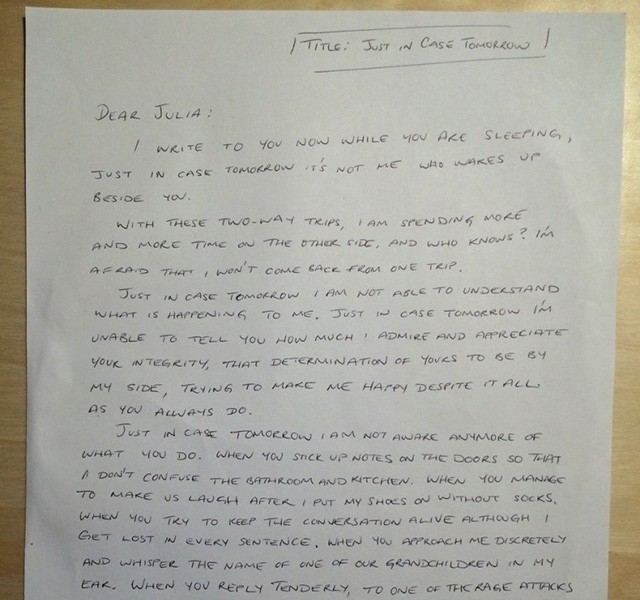 TITLE: JUST IN CASE TOMORROW
DEAR JULIA:
I WRITE TO YOU NOW WHILE YOU ARE SLEEPING,
JUST IN CASE TOMORROW IT'S NOT ME WHO WAKES UP
BESIDE YOU.
WITH THESE TWO-WAY TRIPS, I AM SPENDING MORE
AND MORE TIME ON THE OTHER SIDE, AND WHO KNOWS? I'M
AFRAID THAT I WON'T COME BACK FROM ONE TRIP.
JUST IN CASE TOMORROW I AM NOT ABLE TO UNDERSTAND
WHAT IS HAPPENING TO ME. JUST IN CASE TOMORROW I'M
UNABLE TO TELL YOU HOW MUCH I ADMIRE AND APPRECIATE
YOUR INTEGRITY, THAT DETERMINATION OF YOURS TO BE BY
MY SIDE, TRYING TO MAKE ME HAPPY DESPITE IT ALL
AS YOU ALWAYS DO.
JUST IN CASE TOMORROW I AM NOT AWARE ANYMORE OF
WHAT YOU DO. WHEN YOU STICK UP NOTES ON THE DOORS SO THAT
I DON'T CONFUSE THE BATHROOM AND KITCHEN. WHEN YOU MANAGE
TO MAKE US LAUGH AFTER I PUT MY SHOES ON WITHOUT SOCKS.
WHEN YOU TRY TO KEEP THE CONVERSATION ALIVE ALTHOUGH I
GET LOST IN EVERY SENTENCE. WHEN YOU APPROACH ME DISCRETELY
AND WHISPER THE NAME OF ONE OF OUR GRANDCHILDREN IN MY
EAR. WHEN YOU REPLY TENDERLY, TO ONE OF THE RAGE ATTACKS